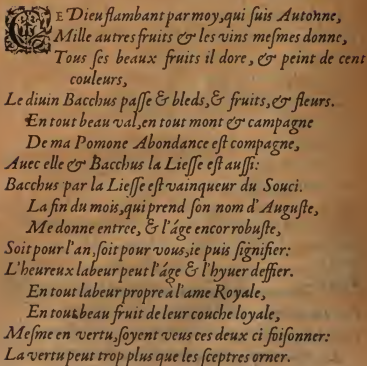 CE Dieu flambant par moy, qui ſuis Autonne,
Mille autres fruits & les vins meſmes donne,
Tous ſes beaux fruits il dore, & peint de cent
couleurs,
Le diuin Bacchus paſſe & bleds, & fruits, & fleurs.
En tout beau val, en tout mont & campagne
De ma Pomone Abondance eſt compagne,
Auec elle & Bacchus la Lieſſe eſt auſſi:
Bacchus par la Lieſſe eſt vainqueur du Souci.
La fin du mois, qui prend ſon nom d'Auguſte,
Me donne entree, & l'áge encor robuſte,
Soit pour l'an, ſoit pour vous, ie puis ſignifier:
L'heureux labeur peut l'áge & l'hyuer deffier.
En tout labeur propre à l'ame Royale,
En tout beau fruit de leur couche loyale,
Meſme en vertu, ſoyent veus ces deux ci foiſonner:
La vertu peut trop plus que les ſceptres orner.